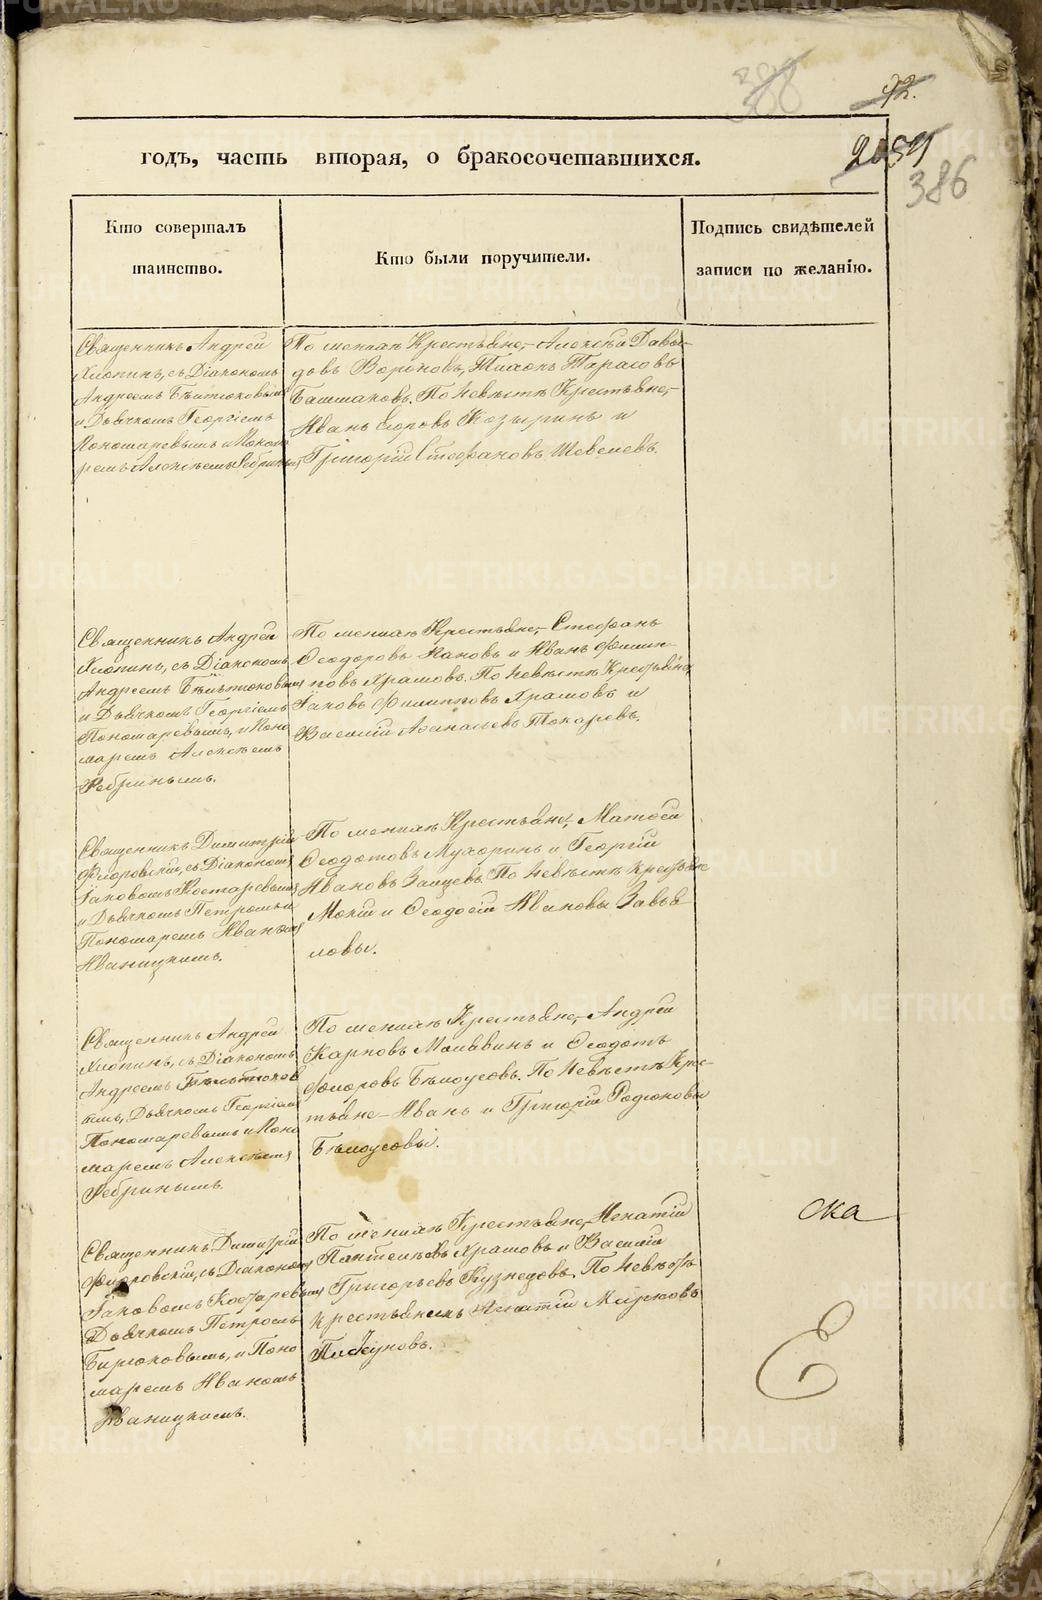 388
92.
годъ, часть вторая, о бракосочетавшихся.
2057
386
Кто совершалъ
таинство.
Кто были поручители.
Подпись свидѣтелей
записи по желанію.
Священникъ Андрей
Хлопинъ, съ Діакономъ
Андреемъ
и Дьячкомъ Георгіемъ
Пономаревымъ и Поно
ремъ Алексѣемъ Ребринымъ
По женихѣ Крестьяне, Алексѣй Давы-
довъ Вороновъ, Тихонъ Тарасовъ
Башмаковъ. По Невѣстѣ Крестьяне,
Иванъ Егоровъ Козыринъ и
Григорій Стефановъ Шевелевъ.
Священникъ Андрей
Хлопинъ, съ Діакономъ
Андреемъ
и Дьячкомъ Георгіемъ
Пономаревымъ, и Поно
маремъ Алексѣемъ
Ребринымъ.
По женихѣ Крестьяне, Стефанъ
Ѳеодоровъ Пановъ и Иванъ Филип-
повъ Храмовъ. По Невѣстѣ Крестьяне,
Іаковъ Филипповъ Храмовъ и
Василій Аѳанасьевъ Токаревъ.
Священникъ Димитрій
Флоровскій, съ Діакономъ
Іаковомъ Костаревымъ
и Дьячкомъ Петромъ и
Пономаремъ Иваномъ
Иваницкимъ.
По женихѣ Крестьяне, Матѳей
Ѳедотовъ Мухоринъ и Георгій
Ивановъ Зайцевъ. По Невѣстѣ Крестьяне
Мокій и Ѳеодосій Ивановы Завья
ловы.
Священникъ Андрей
Хлопинъ, съ Діакономъ
Андреемъ
Дьячкомъ Георгіемъ
Пономаревымъ и Поно
маремъ Алексѣемъ
Ребринымъ.
По женихѣ Крестьяне, Андрей
Карповъ Малявинъ и Ѳеодотъ
Флоровъ Бѣлоусовъ. По Невѣстѣ Кре-
стьяне Иванъ и Григорій Родіоновы
Бѣлоусовы.
Священникъ Димитрій
Флоровскій, съ Діакономъ
Іаковомъ Костаревымъ
Дьячкомъ Петромъ
Бирюковымъ, и Поно
маремъ Иваномъ
Иваницкимъ.
По женихѣ Крестьяне, Игнатій
Пантелѣевъ Храмовъ и Василій
Григорьевъ Кузнецовъ. По Невѣстѣ
крестьянинъ Игнатій Мироновъ
Пискуновъ.
ска
METRIKI.GASO-URAL.RU